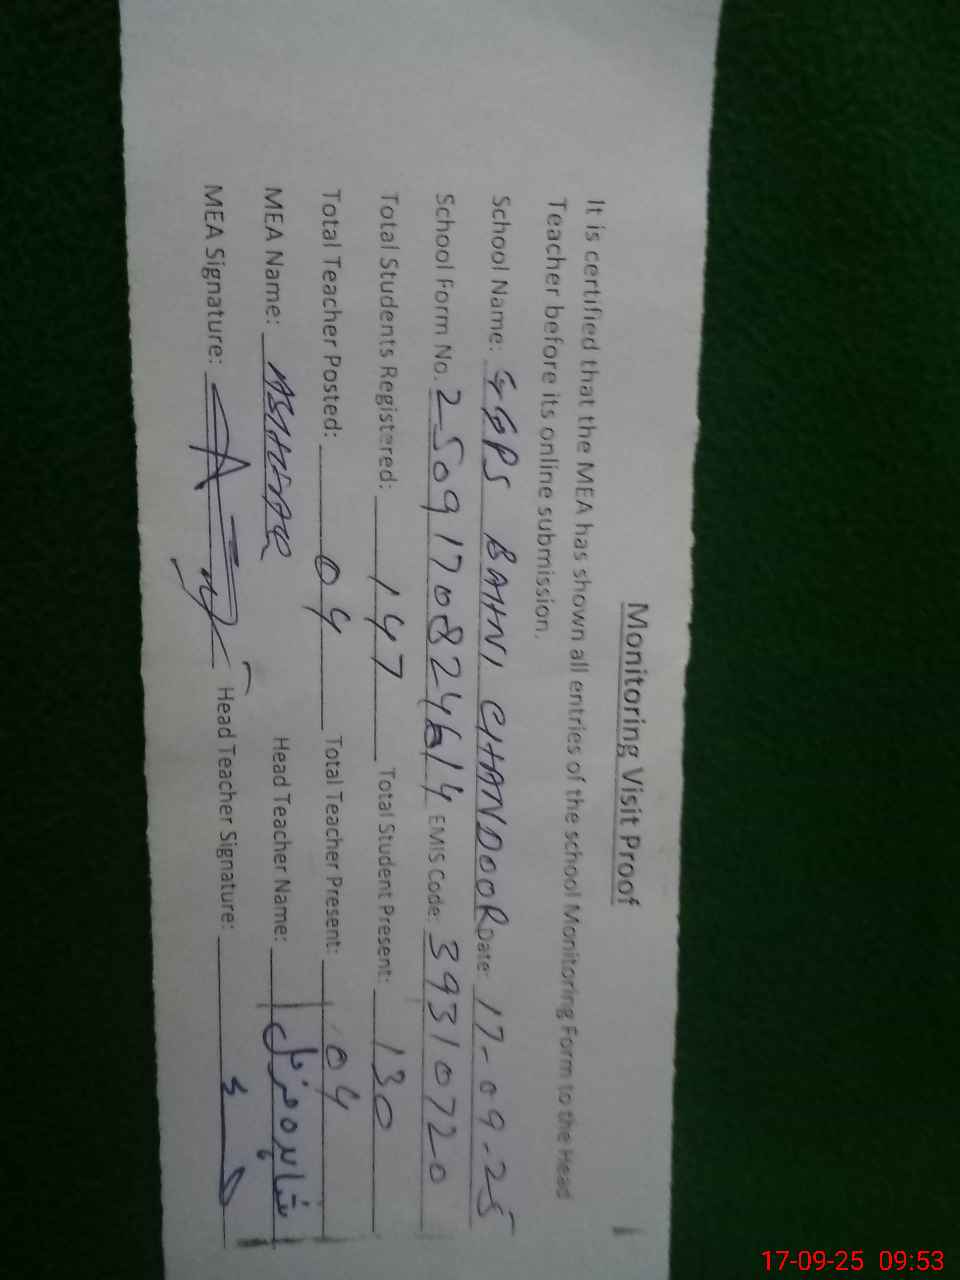 Monitoring Visit Proof
It is certified that the MEA has shown all entries of the school Monitoring Form to the Head
Teacher before its online submission.
School Name: GGPS BAHNI CHANDOOR Date: 17-09-25
School Form No. 250917082414 EMIS Code: 39310720
Total Students Registered: 147 Total Student Present: 130
Total Teacher Posted: 04 Total Teacher Present: 04
MEA Name: Head Teacher Name: شاہدہ مزمل
MEA Signature: Head Teacher Signature:
17-09-25 09:53